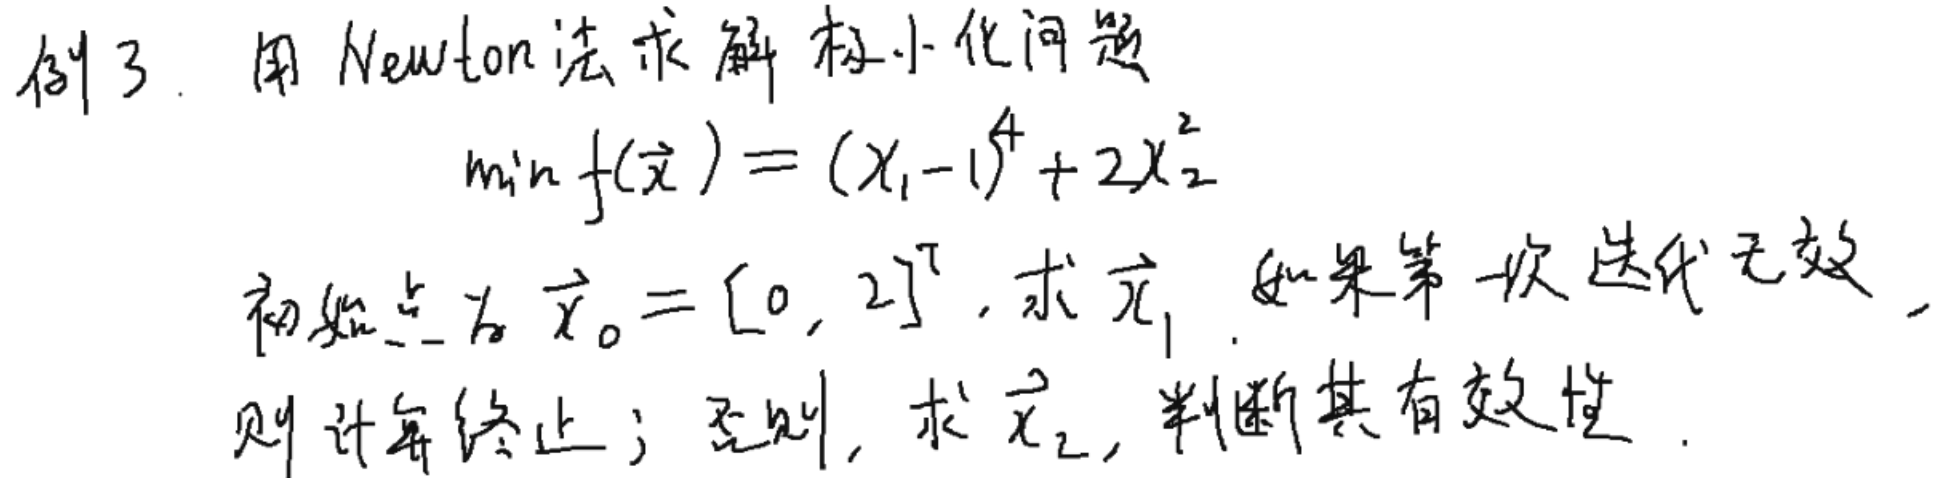 例3. 用 Newton法求解极小化问题
min f(x⃗) = (x₁-1)⁴ + 2x₂²
初始点为 x⃗₀ = [0, 2]ᵀ, 求 x⃗₁. 如果第一次迭代无效,
则计算终止; 否则, 求 x⃗₂, 判断其有效性.